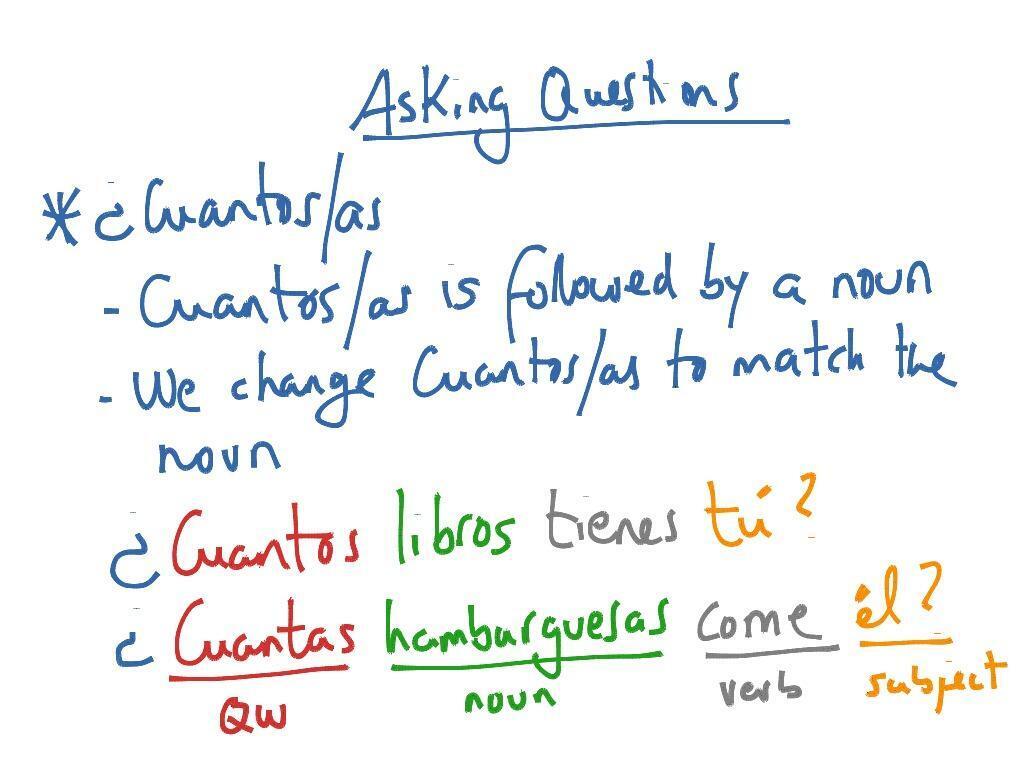 Asking Questions
* ¿Cuantos/as
- Cuantos/as is followed by a noun
- We change Cuantos/as to match the
noun
¿Cuantos libros tienes tú?
¿Cuantas hamburguesas come él?
QW noun verb subject